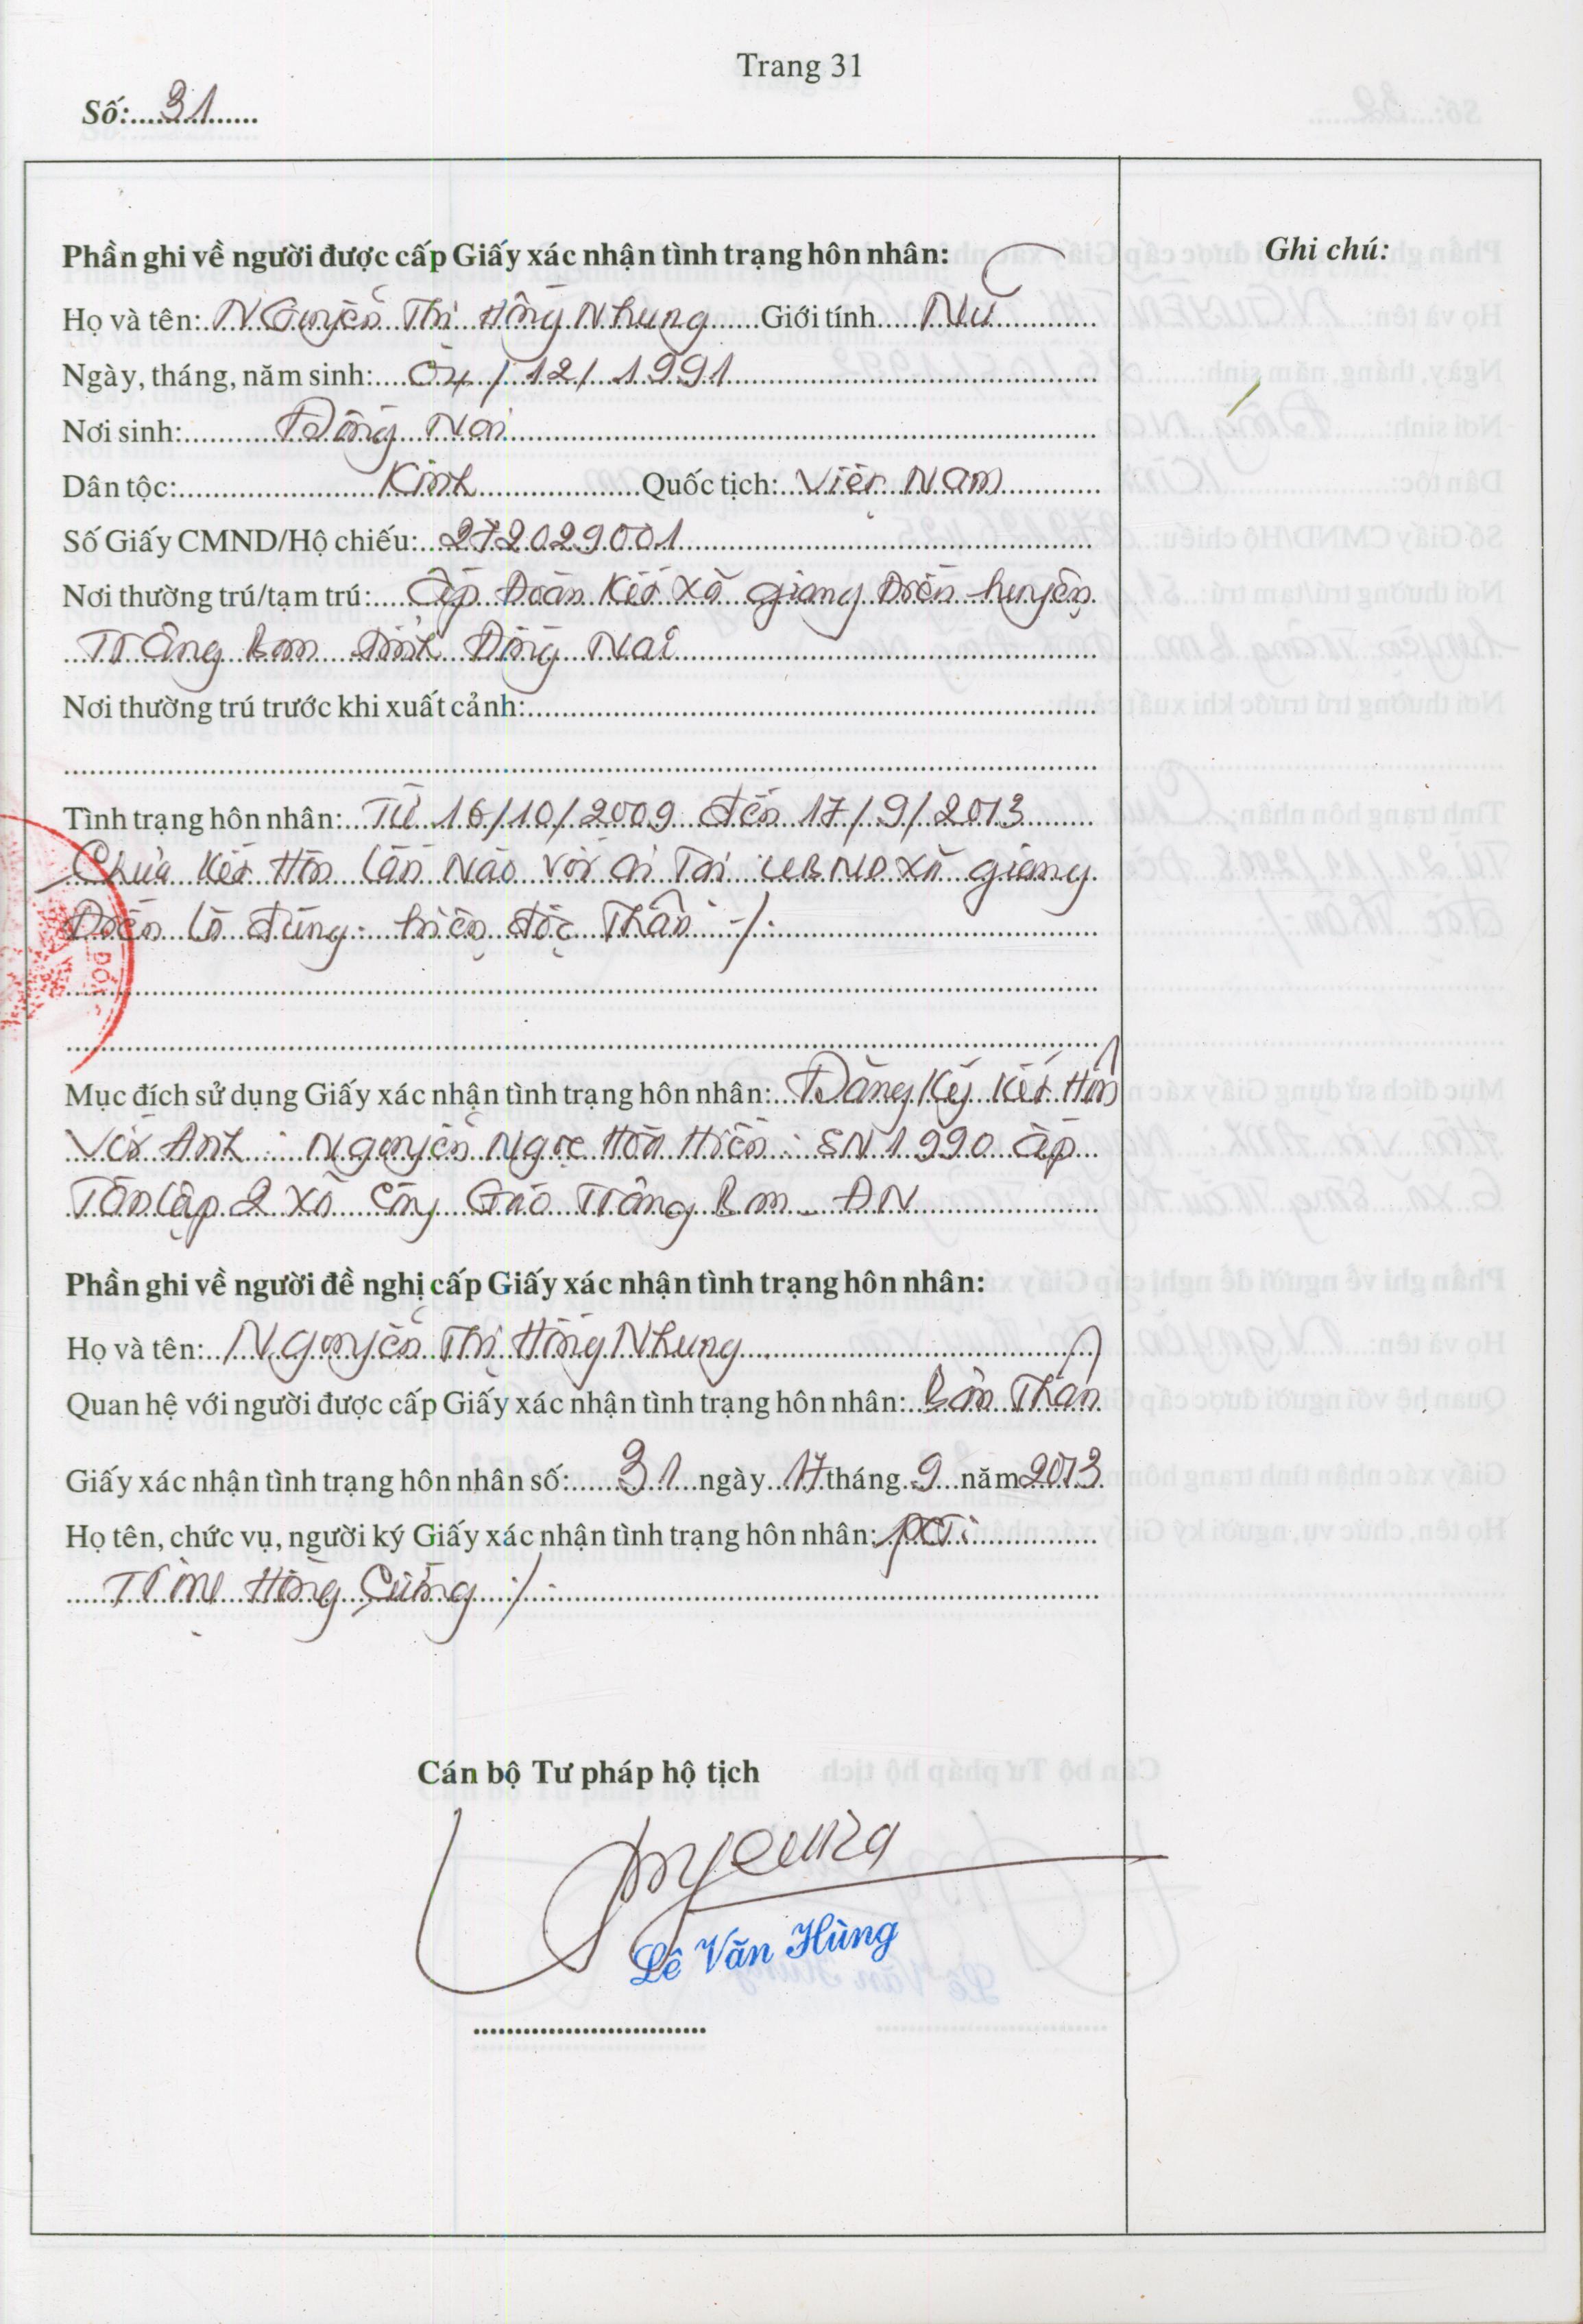 Trang 31
Số: 31
Phần ghi về người được cấp Giấy xác nhận tình trạng hôn nhân:
Ghi chú:
Họ và tên: Nguyễn Thị Hồng Nhung Giới tính Nữ
Ngày, tháng, năm sinh: 04/12/1991
Nơi sinh: Đồng Nai
Dân tộc: Kinh Quốc tịch: Việt Nam
Số Giấy CMND/Hộ chiếu: 272029001
Nơi thường trú/tạm trú: Ấp Đoàn Kết xã Giang Điền huyện
Trảng Bom tỉnh Đồng Nai
Nơi thường trú trước khi xuất cảnh:
Tình trạng hôn nhân: Từ 16/10/2009 đến 17/9/2013
Chưa Kết Hôn lần Nào Với ai Tại UBND xã Giang
Điền là đúng. hiện độc Thân ./.
Mục đích sử dụng Giấy xác nhận tình trạng hôn nhân: Đăng Ký Kết Hôn
Với Anh: Nguyễn Ngọc Hòa Hiền: SN 1990 ấp
Tân Lập 2 Xã Cây Gáo Trảng Bom - ĐN
Phần ghi về người đề nghị cấp Giấy xác nhận tình trạng hôn nhân:
Họ và tên: Nguyễn Thị Hồng Nhung
Quan hệ với người được cấp Giấy xác nhận tình trạng hôn nhân: Bản Thân
Giấy xác nhận tình trạng hôn nhân số: 31 ngày 17 tháng 9 năm 2013
Họ tên, chức vụ, người ký Giấy xác nhận tình trạng hôn nhân: PCT:
Trịnh Hồng Cường ./.
Cán bộ Tư pháp hộ tịch
Lê Văn Hùng